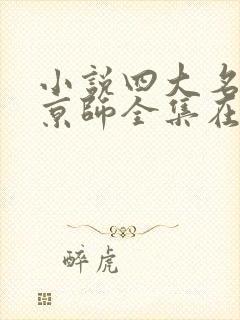 小說四大名
京師全集在
醉虎